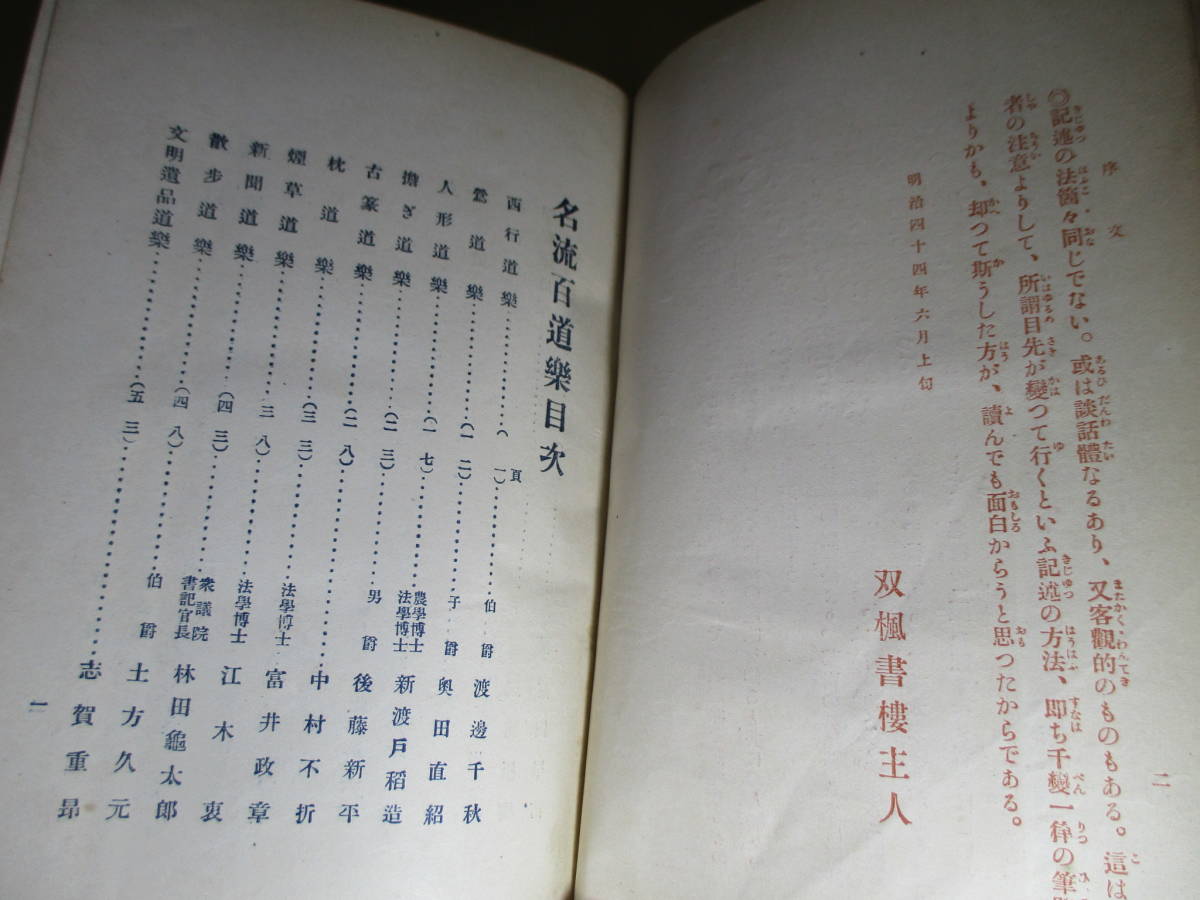 序文
二
◎記述の法箇々同じでない。或は談話體なるあり、又客觀的のものもある。這は
者の注意よりして、所謂目先が變つて行くといふ記述の方法、即ち千變一律の筆
よりかも、却つて斯うした方が、讀んでも面白からうと思つたからである。
明治四十四年六月上旬
双楓書樓主人
名流百道樂目次
頁
西行道樂……(一)……伯爵 渡邊千秋
鶯道樂……(一二)……子爵 奧田直紹
人形道樂……(一七)……農學博士 法學博士 新渡戸稻造
擔ぎ道樂……(二三)……男爵 後藤新平
古篆道樂……(二八)……中村不折
枕道樂……(三三)……法學博士 富井政章
煙草道樂……三八)……法學博士 江木衷
新聞道樂……(四三)……衆議院書記官長 林田龜太郎
散步道樂……(四八)……伯爵 土方久元
文明遺品道樂……(五三)……志賀重昂
一